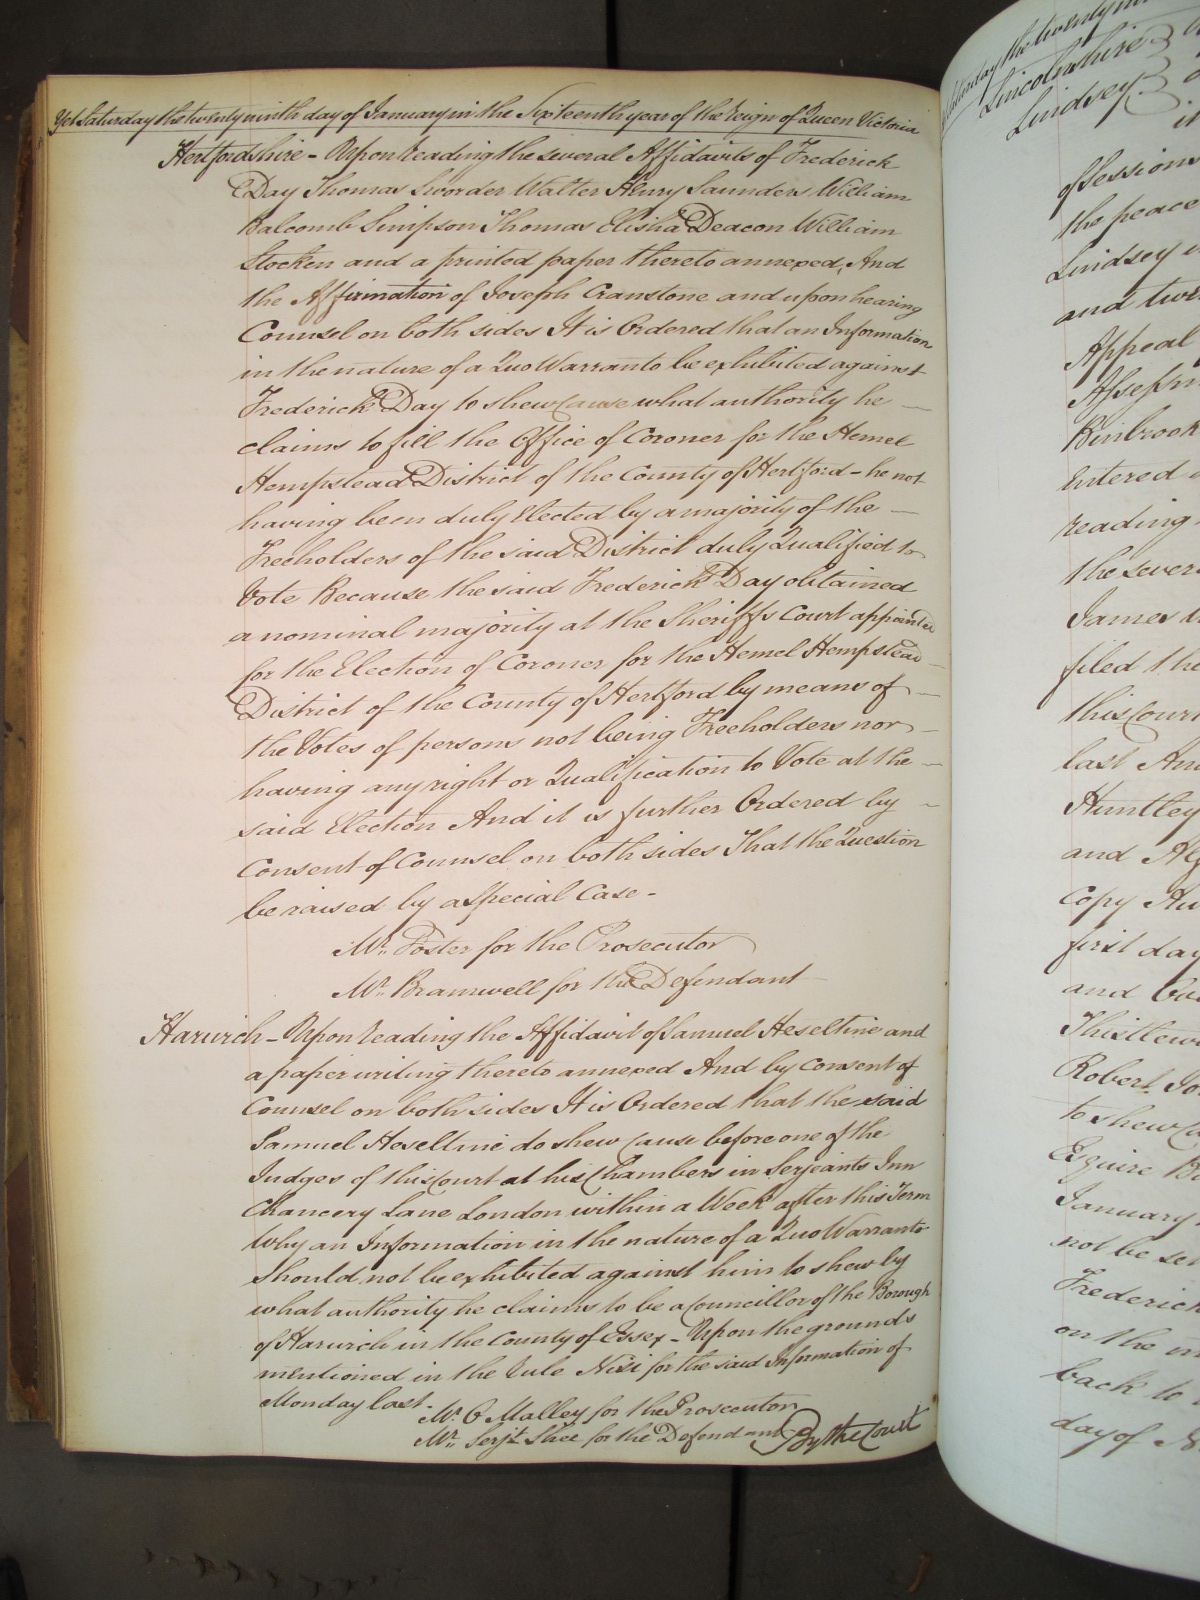 Yet Saturday the twenty ninth day of January in the Sixteenth year of the Reign of Queen Victoria
Hertfordshire - Upon reading the several Affidavits of Frederick
Day Thomas Sworder Walter Henry Saunders William
Balcomb Simpson Thomas Elisha Deacon William
Stocken and a printed paper thereto annexed, And
the Affirmation of Joseph Cranstone and upon hearing
Counsel on both sides It is Ordered that an Information
in the nature of a Quo Warranto be exhibited against
Frederick Day to shew Cause what authority he
claims to fill the Office of Coroner for the Hemel
Hempstead District of the County of Hertford - he not
having been duly Elected by a majority of the
Freeholders of the said District duly Qualified to
Vote Because the said Frederick Day obtained
a nominal majority at the Sheriffs Court appointed
for the Election of Coroner for the Hemel Hempstead
District of the County of Hertford by means of
the Votes of persons not being Freeholders nor
having any right or Qualification to Vote at the
said Election And it is further Ordered by
Consent of Counsel on both sides That the Question
be raised by a Special Case -
Mr. Foster for the Prosecutor
Mr. Bramwell for the Defendant
Harwich - Upon reading the Affidavit of Samuel Heseltine and
a paper writing thereto annexed And by consent of
Counsel on both sides It is Ordered that the said
Samuel Heseltine do shew Cause before one of the
Judges of this Court at his Chambers in Serjeants Inn
Chancery Lane London within a Week after this Term
Why an Information in the nature of a Quo Warranto
should not be exhibited against him to shew by
what authority he claims to be a Councillor of the Borough
of Harwich in the County of Essex - Upon the grounds
mentioned in the Rule Nisi for the said Information of
Monday last -
Mr. O Malley for the Prosecutor
Mr. Serjt. Shee for the Defendant By the Court
Saturday the twenty
Lincolnshire
Lindsey
of Sessions
the peace
Lindsey
and
Appeal
Binbrook
Entered
reading
the
James
filed the
this Court
last And
Huntley
and
Copy
first day
and
Robert
to shew
Esquire
January
not be
Frederick
on the
back to
day of